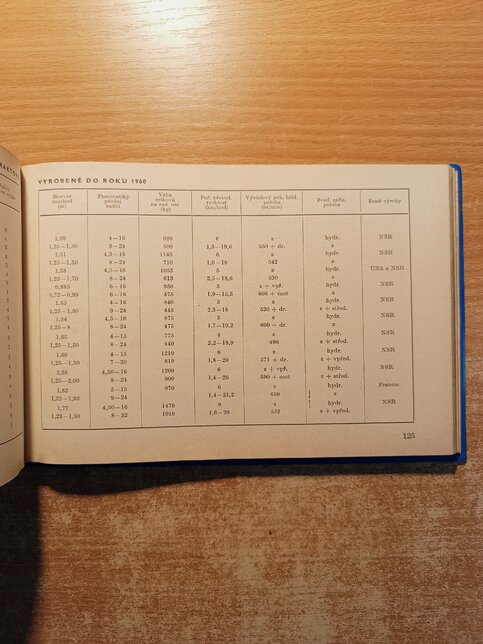 VYROBENÉ DO ROKU 1960
Rozvor rozchod (m) Pneumatiky přední zadní Váha celková na zad. ose (kg) Poč. převod. rychlosti (km/hod) Vývodový poh. hříd. poloha (ot/min) Země výroby
1,69 4—16 920 6 z hydr. NSR
1,25—1,50 8—24 500 1,5—19,6 550 + dr. z
1,51 4,5—16 1145 6 z hydr. NSR
1,25—1,50 8—24 710 1,6—18 542 z
1,58 4,5—16 1053 5 z hydr. USA a NSR
1,25—1,70 8—24 613 2,5—18,6 530 z
0,885 6—16 950 5 z + vpř. hydr. NSR
0,72—0,99 6—16 475 1,9—15,5 608 + mot z
1,65 4—16 840 5 z hydr. NSR
1,25—1,50 9—24 445 2,3—18 530 + dr. z + střed.
1,54 4,5—16 875 5 z hydr. NSR
1,25—8 8—24 475 1,7—19,2 600 — dr. z
1,65 4—15 775 4 z hydr. NSR
1,25—1,50 8—24 440 2,2—18,9 496 z + střed.
1,60 4—15 1210 6 z hydr. NSR
1,25—1,50 7—30 810 1,8—20 571 + dr. z + vpřed.
2,36 4,50—16 1200 6 z + vpř. hydr. NSR
1,25—2,00 8—24 900 1,4—20 590 + mot z + střed.
1,82 5—15 970 6 z hydr. Francie
1,22—1,92 9—24 1,4—21,2 650 z
1,77 4,50—16 1470 8 z hydr. NSR
1,23—1,50 8—32 1010 1,6—20 552 z + vpřed.
125